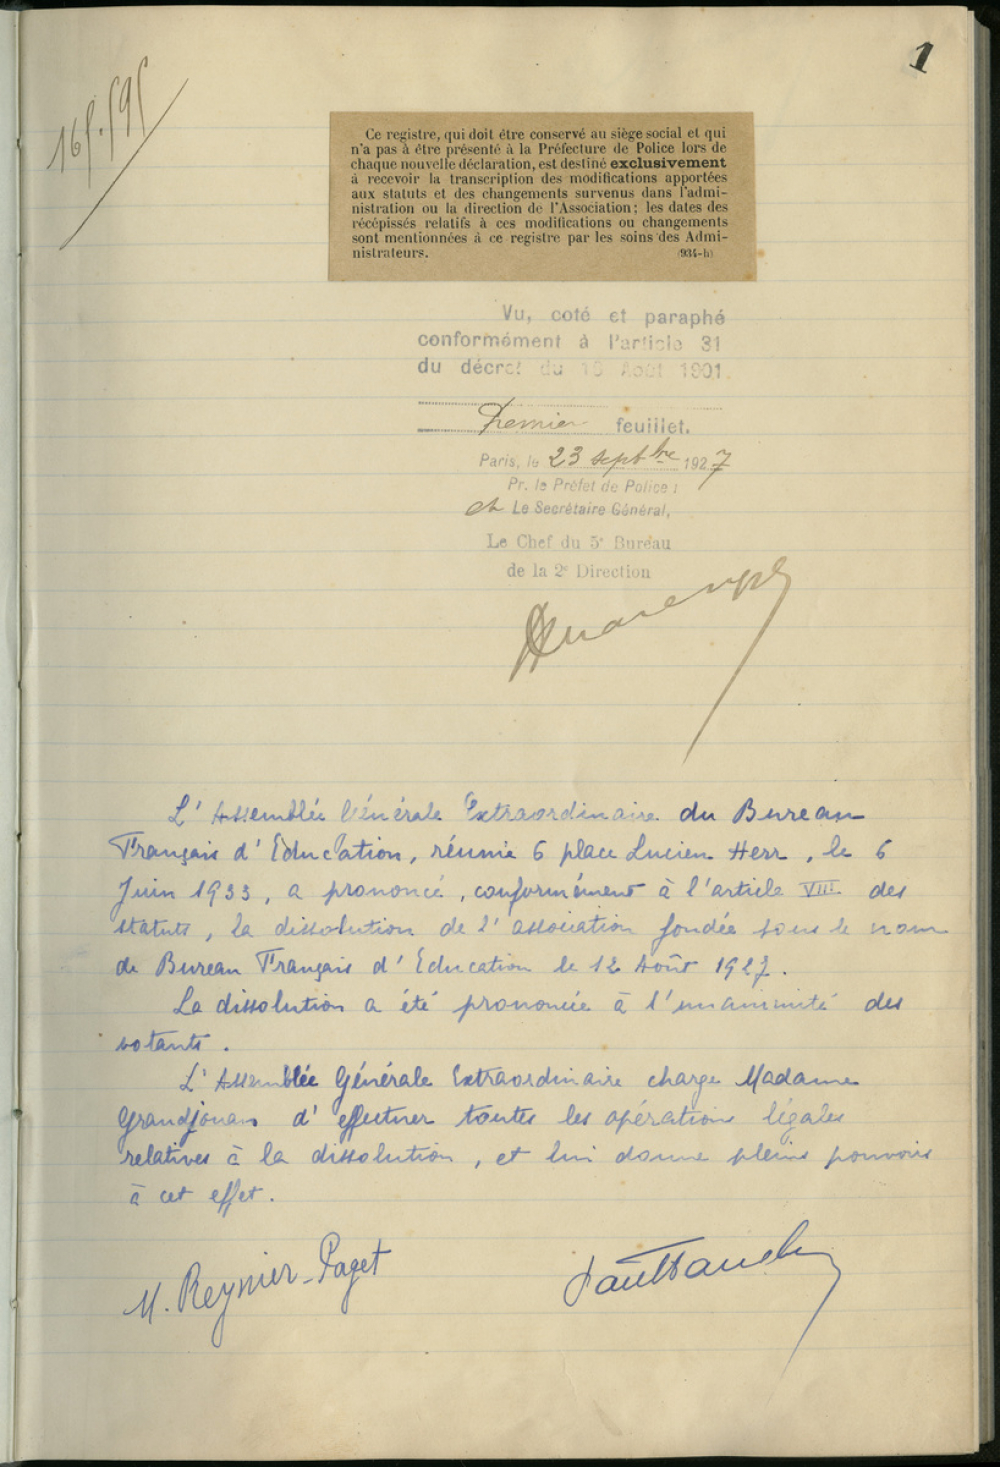 1
165.595
Ce registre, qui doit être conservé au siège social et qui
n'a pas à être présenté à la Préfecture de Police lors de
chaque nouvelle déclaration, est destiné exclusivement
à recevoir la transcription des modifications apportées
aux statuts et des changements survenus dans l'admi-
nistration ou la direction de l'Association; les dates des
récépissés relatifs à ces modifications ou changements
sont mentionnées à ce registre par les soins des Admi-
nistrateurs. (934-b)
Vu, coté et paraphé
conformément à l'article 31
du décret du 16 Août 1901.
Premier feuillet.
Paris, le 23 septbre 1927
Pr. le Préfet de Police:
Le Secrétaire Général,
Le Chef du 5e Bureau
de la 2e Direction
L'Assemblée Générale Extraordinaire du Bureau
Français d'Education, réunie 6 place Lucien Herr, le 6
Juin 1933, a prononcé, conformément à l'article VIII des
statuts, la dissolution de l'association fondée sous le nom
de Bureau Français d'Education le 12 Août 1927.
La dissolution a été prononcée à l'unanimité des
votants.
L'Assemblée Générale Extraordinaire charge Madame
Grandjouan d'effectuer toutes les opérations légales
relatives à la dissolution, et lui donne pleins pouvoirs
à cet effet.
M. Reynier-Paget